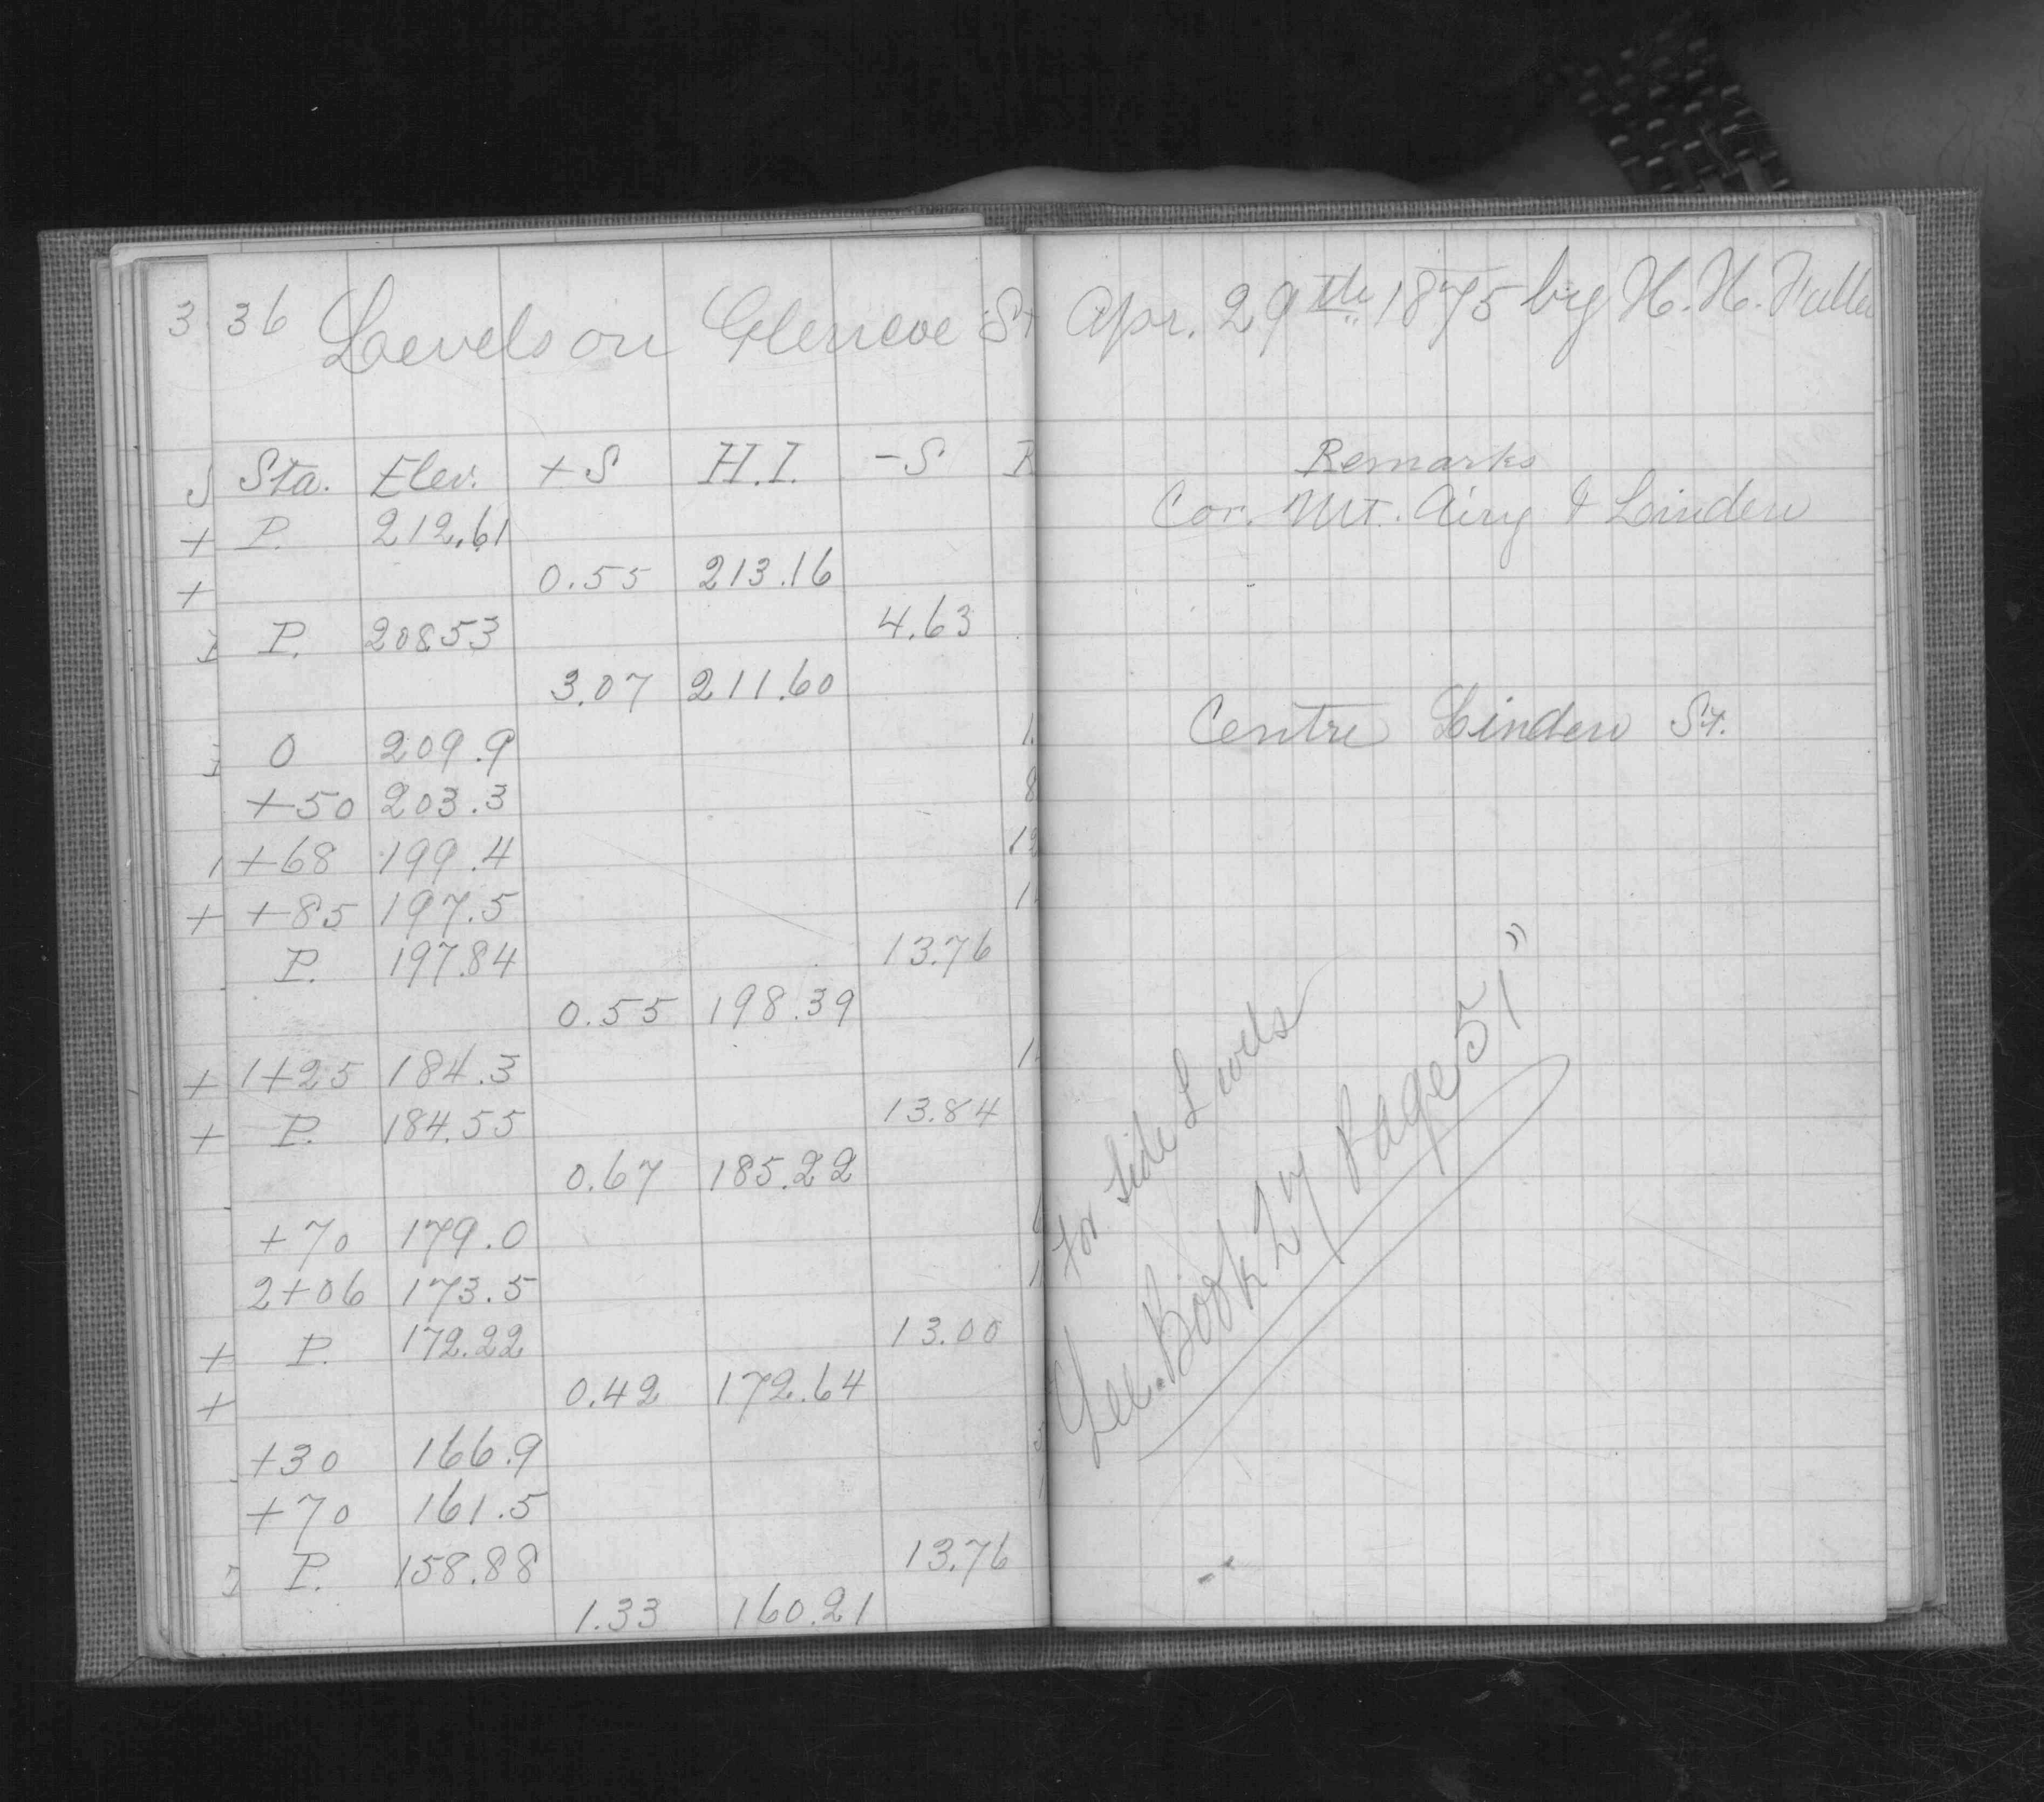 3 36 Levels on Gleneve St Apr. 29th 1875 by H. H. Fuller
Sta. Elev. +S H.I. -S R Remarks
+ P. 212.61 Cor. Mt. Airy & Linden
+ 0.55 213.16
P. 208.53 4.63
3.07 211.60
0 209.9 1. Centre Linden St.
+50 203.3 8
1 +68 199.4 12
+ +85 197.5 1
P. 197.84 13.76
0.55 198.39
+ 1+25 184.3 1
+ P. 184.55 13.84
0.67 185.22
+70 179.0
2+06 173.5 1
+ P. 172.22 13.00
+ 0.42 172.64
+30 166.9
+70 161.5
P. 158.88 13.76
1.33 160.21
For Side Levels
See Book 27 Page 51"